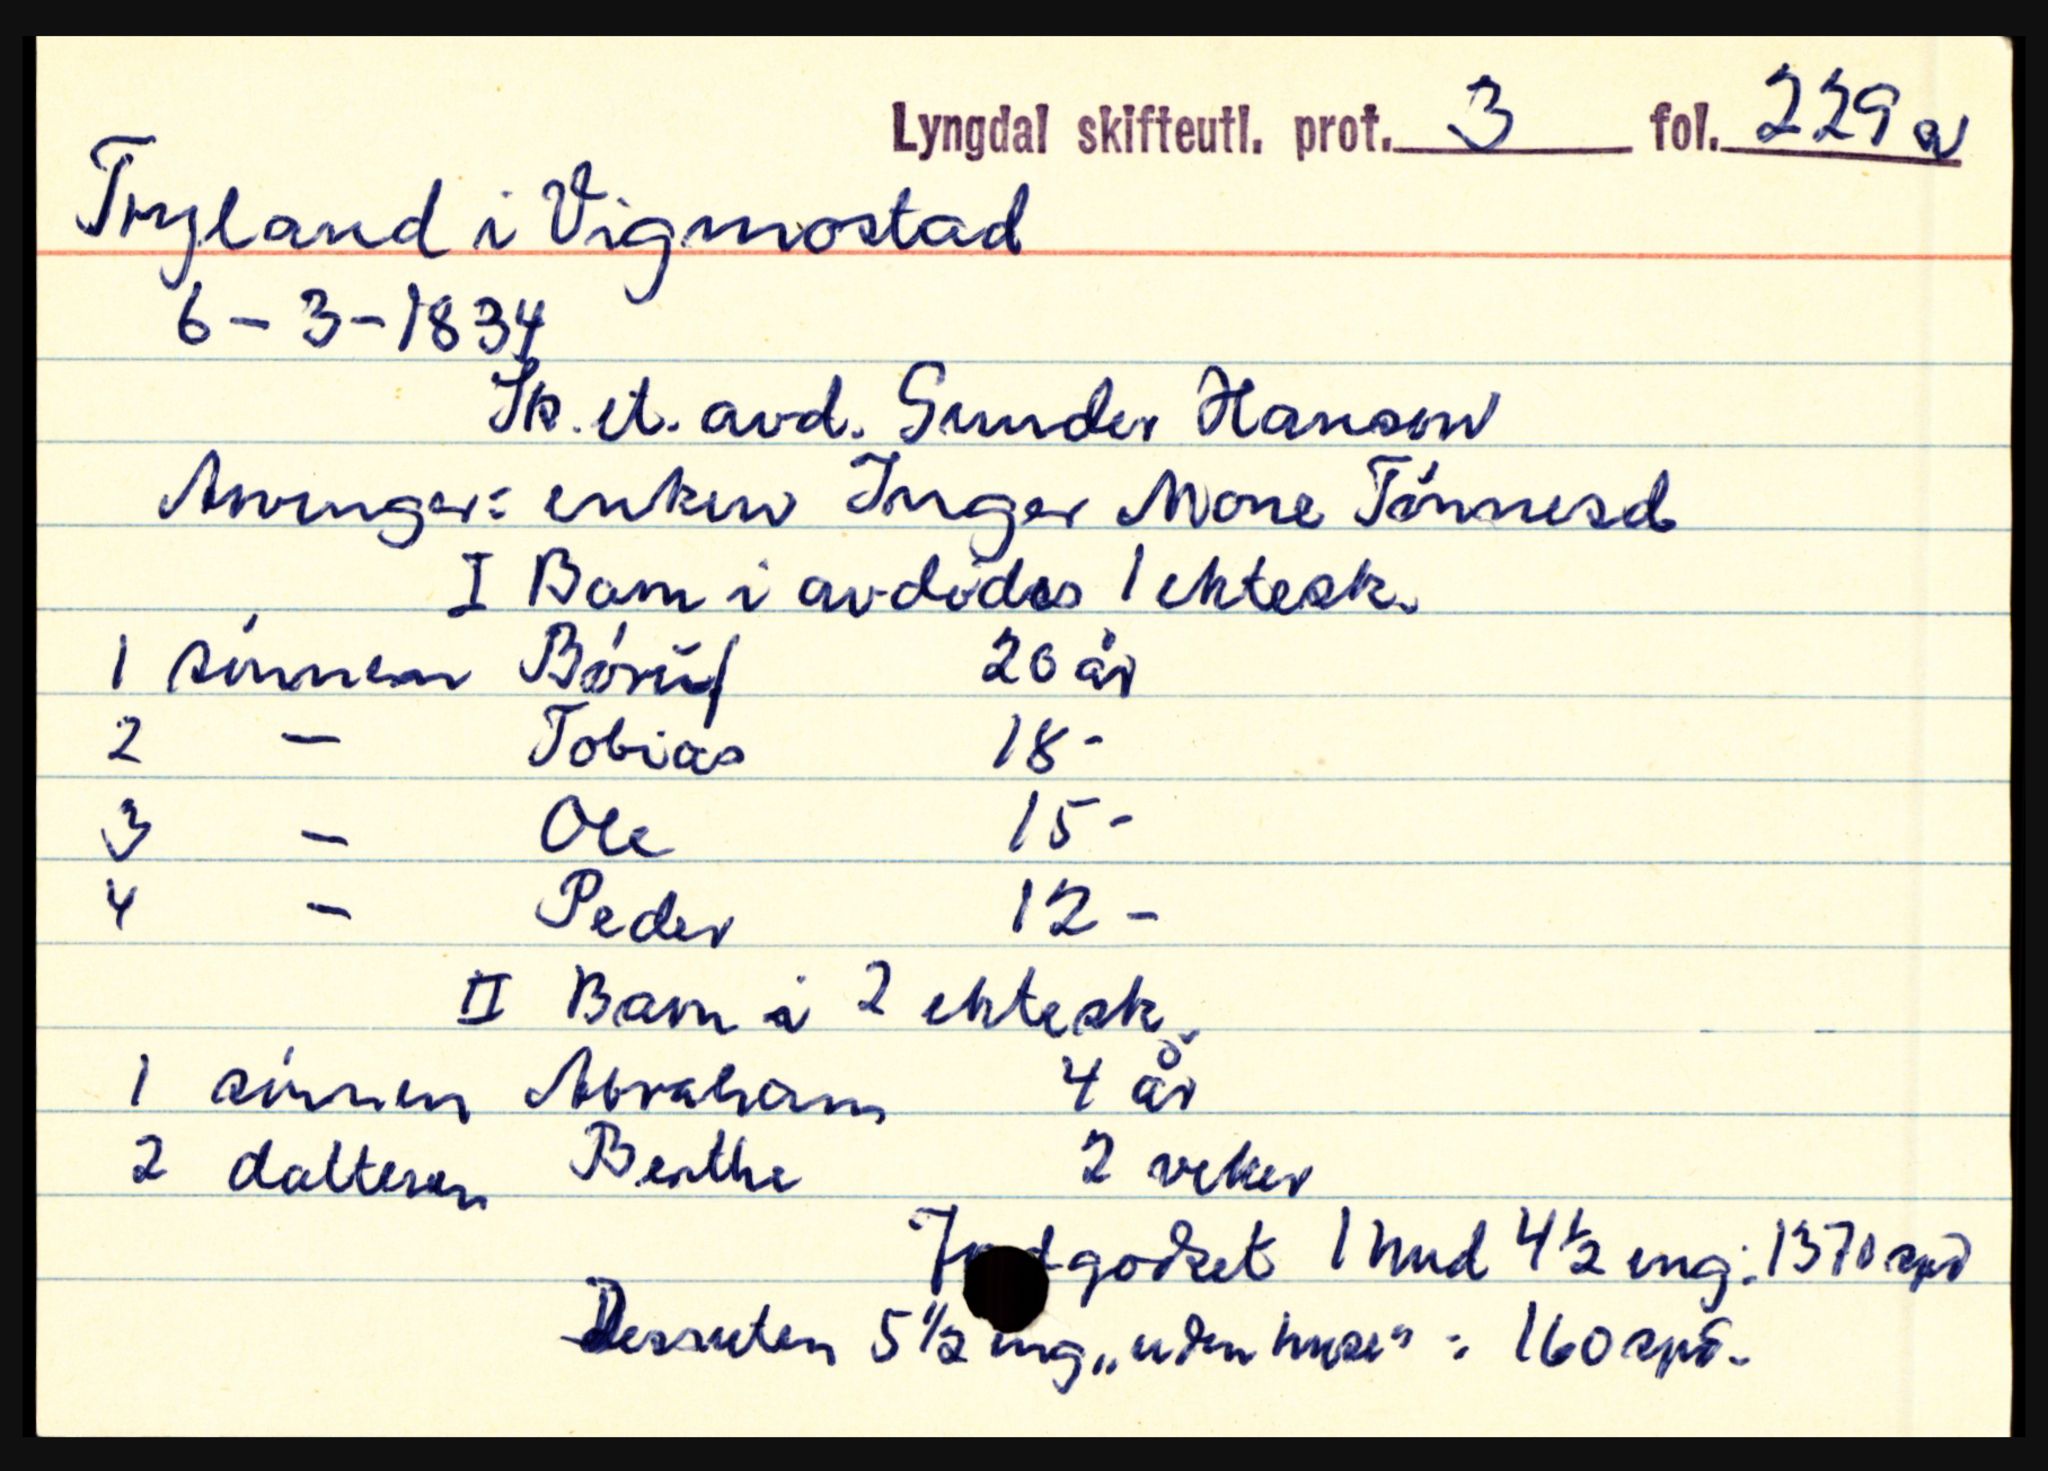 Lyngdal skifteutl. prot. 3 fol. 229 a
Tryland i Vigmostad
6-3-1834
Sk. et. avd. Gunder Hansen
Arvinger: enken Inger Mone Tónnesd
I Barn i avdódes 1 ektesk.
1 sónnen Bórúf 20 år
2 - Tobias 18-
3 - Ole 15-
4 - Peder 12-
II Barn i 2 ektesk.
1 sónnen Abraham 4 år
2 datteren Berthe 2 veker
Jordgodset 1 hud 4 1/2 eng: 1370 spd
Dessuten 5 1/2 eng „uden huse" : 160 spd.